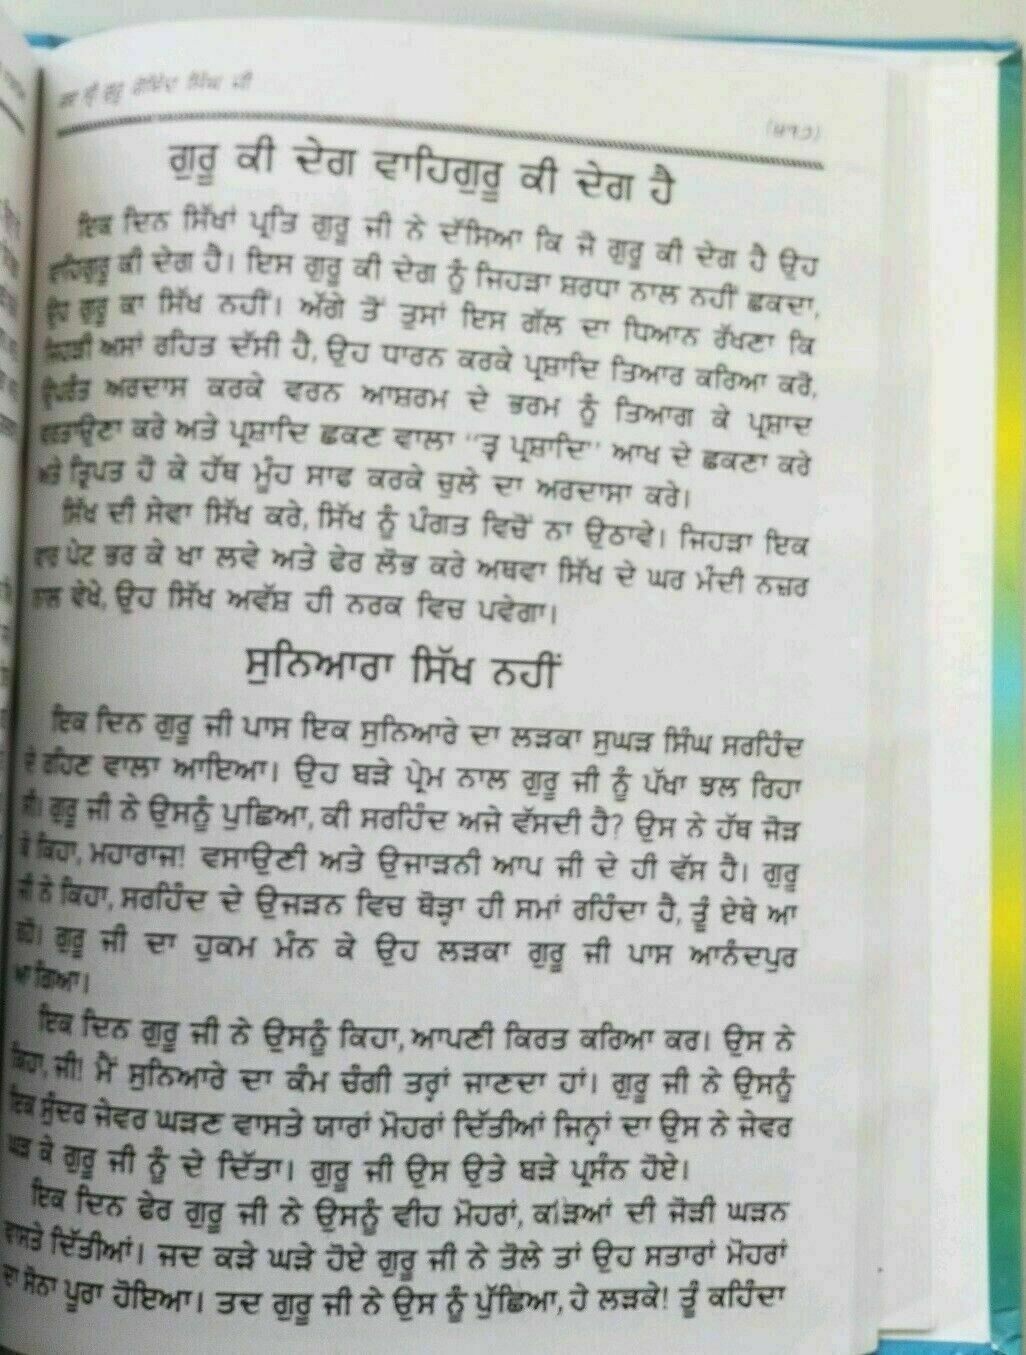 ਗੁਰੂ ਗੋਬਿੰਦ ਸਿੰਘ ਜੀ
(੫੧੭)
ਗੁਰੂ ਕੀ ਦੇਗ ਵਾਹਿਗੁਰੂ ਕੀ ਦੇਗ ਹੈ
ਇਕ ਦਿਨ ਸਿੱਖਾਂ ਪ੍ਰਤਿ ਗੁਰੂ ਜੀ ਨੇ ਦੱਸਿਆ ਕਿ ਜੋ ਗੁਰੂ ਕੀ ਦੇਗ ਹੈ ਉਹ
ਵਾਹਿਗੁਰੂ ਕੀ ਦੇਗ ਹੈ। ਇਸ ਗੁਰੂ ਕੀ ਦੇਗ ਨੂੰ ਜਿਹੜਾ ਸ਼ਰਧਾ ਨਾਲ ਨਹੀਂ ਛਕਦਾ,
ਉਹ ਗੁਰੂ ਕਾ ਸਿੱਖ ਨਹੀਂ। ਅੱਗੇ ਤੋਂ ਤੁਸਾਂ ਇਸ ਗੱਲ ਦਾ ਧਿਆਨ ਰੱਖਣਾ ਕਿ
ਜਿਹੜੀ ਅਸਾਂ ਰਹਿਤ ਦੱਸੀ ਹੈ, ਉਹ ਧਾਰਨ ਕਰਕੇ ਪ੍ਰਸ਼ਾਦਿ ਤਿਆਰ ਕਰਿਆ ਕਰੋ,
ਉਪਰੰਤ ਅਰਦਾਸ ਕਰਕੇ ਵਰਨ ਆਸ਼ਰਮ ਦੇ ਭਰਮ ਨੂੰ ਤਿਆਗ ਕੇ ਪ੍ਰਸ਼ਾਦ
ਵਰਤਾਉਣਾ ਕਰੇ ਅਤੇ ਪ੍ਰਸ਼ਾਦਿ ਛਕਣ ਵਾਲਾ ‘‘ਤ੍ਵ ਪ੍ਰਸ਼ਾਦਿ’’ ਆਖ ਦੇ ਛਕਣਾ ਕਰੇ
ਅਤੇ ਤ੍ਰਿਪਤ ਹੋ ਕੇ ਹੱਥ ਮੂੰਹ ਸਾਫ ਕਰਕੇ ਚੁਲੇ ਦਾ ਅਰਦਾਸਾ ਕਰੇ।
ਸਿੱਖ ਦੀ ਸੇਵਾ ਸਿੱਖ ਕਰੇ, ਸਿੱਖ ਨੂੰ ਪੰਗਤ ਵਿਚੋਂ ਨਾ ਉਠਾਵੇ। ਜਿਹੜਾ ਇਕ
ਵਾਰ ਪੇਟ ਭਰ ਕੇ ਖਾ ਲਵੇ ਅਤੇ ਫੇਰ ਲੋਭ ਕਰੇ ਅਥਵਾ ਸਿੱਖ ਦੇ ਘਰ ਮੰਦੀ ਨਜ਼ਰ
ਨਾਲ ਵੇਖੇ, ਉਹ ਸਿੱਖ ਅਵੱਸ਼ ਹੀ ਨਰਕ ਵਿਚ ਪਵੇਗਾ।
ਸੁਨਿਆਰਾ ਸਿੱਖ ਨਹੀਂ
ਇਕ ਦਿਨ ਗੁਰੂ ਜੀ ਪਾਸ ਇਕ ਸੁਨਿਆਰੇ ਦਾ ਲੜਕਾ ਸੁਘੜ ਸਿੰਘ ਸਰਹਿੰਦ
ਦੇ ਰਹਿਣ ਵਾਲਾ ਆਇਆ। ਉਹ ਬੜੇ ਪ੍ਰੇਮ ਨਾਲ ਗੁਰੂ ਜੀ ਨੂੰ ਪੱਖਾ ਝਲ ਰਿਹਾ
ਸੀ। ਗੁਰੂ ਜੀ ਨੇ ਉਸਨੂੰ ਪੁਛਿਆ, ਕੀ ਸਰਹਿੰਦ ਅਜੇ ਵੱਸਦੀ ਹੈ? ਉਸ ਨੇ ਹੱਥ ਜੋੜ
ਕੇ ਕਿਹਾ, ਮਹਾਰਾਜ! ਵਸਾਉਣੀ ਅਤੇ ਉਜਾੜਨੀ ਆਪ ਜੀ ਦੇ ਹੀ ਵੱਸ ਹੈ। ਗੁਰੂ
ਜੀ ਨੇ ਕਿਹਾ, ਸਰਹਿੰਦ ਦੇ ਉਜੜਨ ਵਿਚ ਥੋੜ੍ਹਾ ਹੀ ਸਮਾਂ ਰਹਿੰਦਾ ਹੈ, ਤੂੰ ਏਥੇ ਆ
ਰਹੋ। ਗੁਰੂ ਜੀ ਦਾ ਹੁਕਮ ਮੰਨ ਕੇ ਉਹ ਲੜਕਾ ਗੁਰੂ ਜੀ ਪਾਸ ਆਨੰਦਪੁਰ
ਆ ਗਿਆ।
ਇਕ ਦਿਨ ਗੁਰੂ ਜੀ ਨੇ ਉਸਨੂੰ ਕਿਹਾ, ਆਪਣੀ ਕਿਰਤ ਕਰਿਆ ਕਰ। ਉਸ ਨੇ
ਕਿਹਾ, ਜੀ! ਮੈਂ ਸੁਨਿਆਰੇ ਦਾ ਕੰਮ ਚੰਗੀ ਤਰ੍ਹਾਂ ਜਾਣਦਾ ਹਾਂ। ਗੁਰੂ ਜੀ ਨੇ ਉਸਨੂੰ
ਇਕ ਸੁੰਦਰ ਜੇਵਰ ਘੜਣ ਵਾਸਤੇ ਯਾਰਾਂ ਮੋਹਰਾਂ ਦਿੱਤੀਆਂ ਜਿਨ੍ਹਾਂ ਦਾ ਉਸ ਨੇ ਜੇਵਰ
ਘੜ ਕੇ ਗੁਰੂ ਜੀ ਨੂੰ ਦੇ ਦਿੱਤਾ। ਗੁਰੂ ਜੀ ਉਸ ਉਤੇ ਬੜੇ ਪ੍ਰਸੰਨ ਹੋਏ।
ਇਕ ਦਿਨ ਫੇਰ ਗੁਰੂ ਜੀ ਨੇ ਉਸਨੂੰ ਵੀਹ ਮੋਹਰਾਂ, ਕੜਿਆਂ ਦੀ ਜੋੜੀ ਘੜਨ
ਵਾਸਤੇ ਦਿੱਤੀਆਂ। ਜਦ ਕੜੇ ਘੜੇ ਹੋਏ ਗੁਰੂ ਜੀ ਨੇ ਤੋਲੇ ਤਾਂ ਉਹ ਸਤਾਰਾਂ ਮੋਹਰਾਂ
ਦਾ ਸੋਨਾ ਪੂਰਾ ਹੋਇਆ। ਤਦ ਗੁਰੂ ਜੀ ਨੇ ਉਸ ਨੂੰ ਪੁੱਛਿਆ, ਹੇ ਲੜਕੇ! ਤੂੰ ਕਹਿੰਦਾ